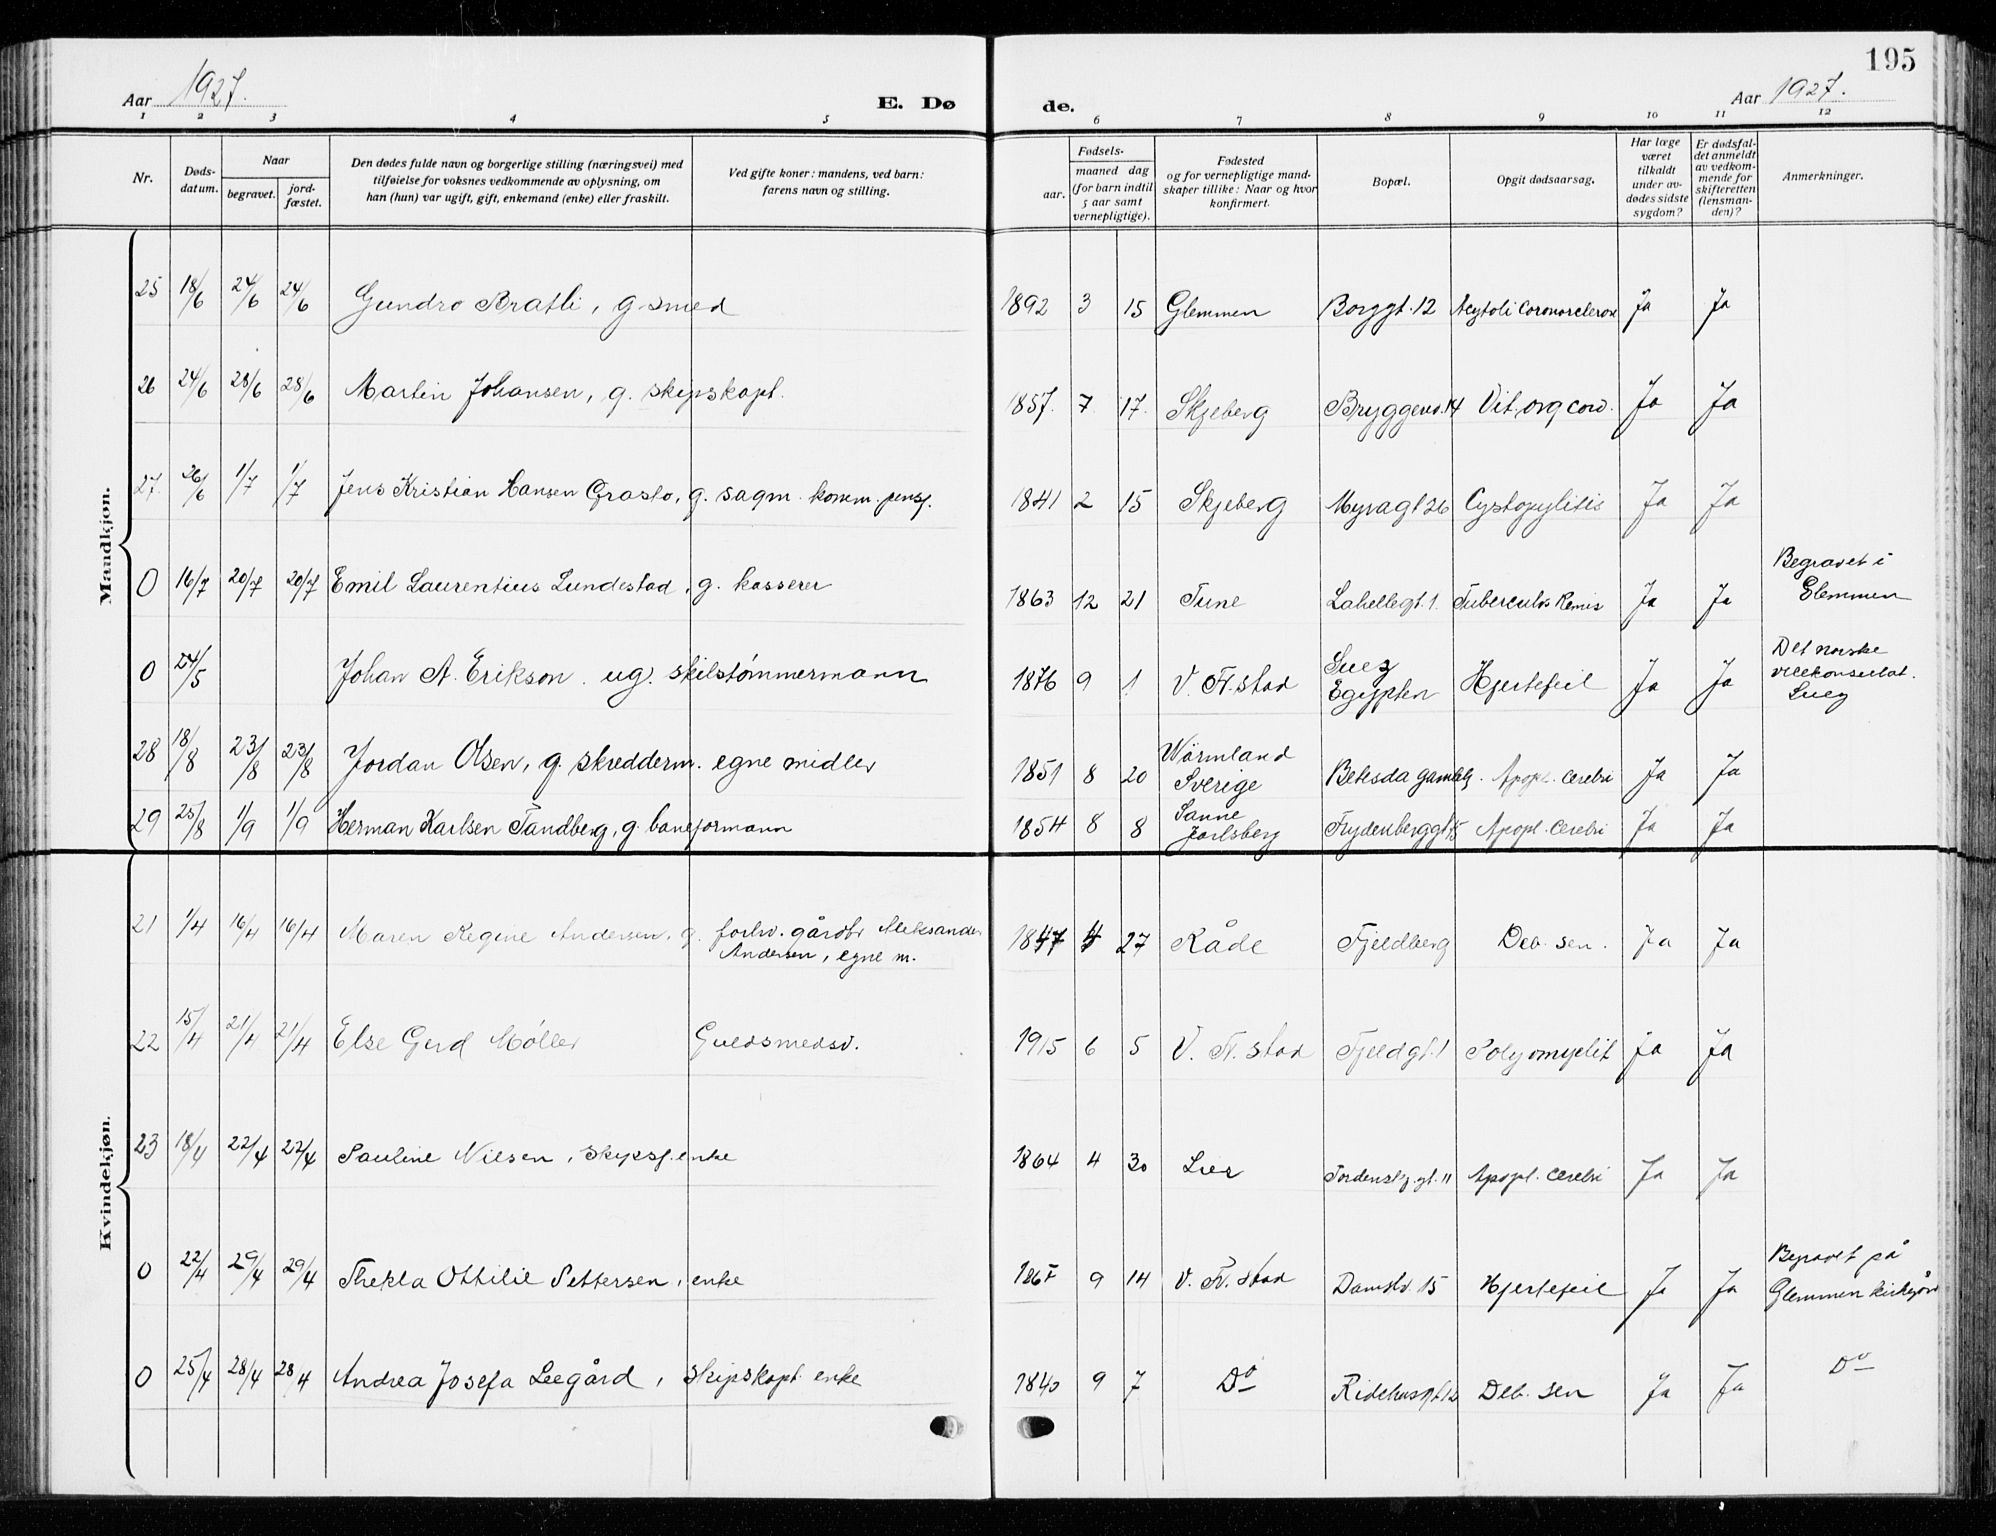 195
Aar 1927.
E. Dø
de.
Aar 1927.
1 2 3 4 5 6 7 8 9 10 11 12
Nr.
Døds-
datum.
Naar
begravet.
jord-
fæstet.
Den dødes fulde navn og borgerlige stilling (næringsvei) med
tilføielse for voksnes vedkommende av oplysning, om
han (hun) var ugift, gift, enkemand (enke) eller fraskilt.
Ved gifte koner: mandens, ved barn:
farens navn og stilling.
Fødsels-
aar.
maaned dag
(for barn indtil
5 aar samt
vernepligtige).
Fødested
og for vernepligtige mand-
skaper tillike: Naar og hvor
konfirmert.
Bopæl.
Opgit dødsaarsag.
Har læge
været
tilkaldt
under av-
dødes sidste
sygdom?
Er dødsfal-
det anmeldt
av vedkom-
mende for
skifteretten
(lensman-
den)?
Anmerkninger.
Mandkjøn.
25 18/6 24/6 24/6 Gundro Bratli, g. smed 1892 3 15 Glemmen Borggt. 12 Ja Ja
26 24/6 28/6 28/6 Martin Johansen, g. skipskapt. 1857. 7. 17. Skjeberg Bryggeve. 14 Vit. org cord. Ja Ja
27. 26/6 1/7 1/7 Jens Kristian Hansen Grasto, g. sagm. komm. pensj. 1841 2 15 Skjeberg Myragt 36 Cystopylitis Ja Ja
0 16/7 20/7 20/7 Emil Laurentius Lundestad, g. kasserer 1863 12 21 Tune Lahellegt. 1. Tuberculos Renis Ja Ja Begravet i
Glemmen
0 24/5 Johan A. Erikson. ug. skibstömmermann 1876 9 1 V. Fr.stad Suez
Egypten Hjertefeil Ja Ja Det norske
vicekonsulat.
Suez
28 18/8 23/8 23/8 Jordan Olsen, g. skredderm. egne midler 1851 8 20 Wärmland
Sverige Betesda gamleh. Apopl. cerebri Ja Ja
29 25/8 1/9 1/9 Herman Karlsen Tandberg, g. baneformann 1854 8 8 Sanne
Jarlsberg Frydenberggt 15 Apopl. Cerebri Ja Ja
Kvindekjøn.
21 1/4 16/4 16/4 Maren Regine Andersen, g. forhv. gårdbr Aleksander
Andersen, egne m. 1847 4 27 Råde Fjeldberg Deb. sen. Ja Ja
22 15/4 21/4 21/4 Else Gerd Möller Guldsmedsv. 1915 6 5 V. Fr. stad Fjeldgt. 1 Polyomyelit Ja Ja
23 18/4 22/4 22/4 Pauline Nilsen, skipsf. enke 1864 4 30 Lier Tordenskj. gt. 11 Apopl. Cerebri Ja Ja
0 22/4 29/4 29/4 Thekla Ottilie Pettersen, enke 9 14 V. Fr. stad Damstv. 15 Hjertefeil Ja Ja Begravet på
Glemmen kirkegård
0 25/4 28/4 28/4 Andrea Josefa Leegård, skipskapt. enke 1840 9 7 Do Ridehusgt 12 Deb. sen Ja Ja Do